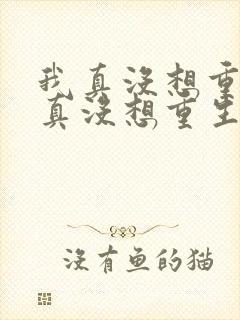 我真没想重
真没想重生
没有鱼的猫